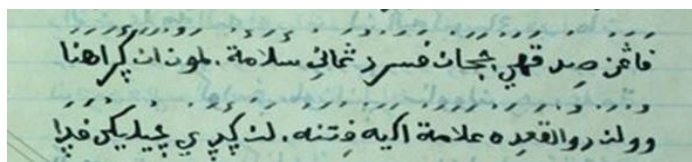 فاڠن صد قهي ججان فسر د ثماني سلامة. لمون ان ڮراهنا
وولن ذوالقعده علامة اكيه فتنه. لن ڮدي چيليكي فدا